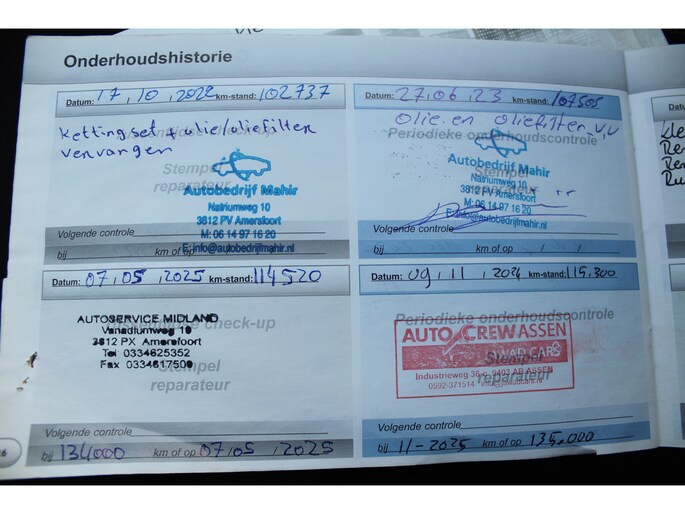 Onderhoudshistorie
Datum: 17, 10, 2022 km-stand: 102737
Ketting set + olie/oliefilter
vervangen
Stempel
reparateur
Autobedrijf Mahir
Natriumweg 10
3812 PV Amersfoort
M: 06 14 97 16 20
E: info@autobedrijfmahir.nl
Volgende controle
bij km of op
Datum: 27, 06, 23 km-stand: 107505
Olie en oliefilter v,v
Periodieke onderhoudscontrole
Stempel
reparateur
Autobedrijf Mahir
Natriumweg 10
3812 PV Amersfoort
M: 06 14 97 16 20
E: info@autobedrijfmahir.nl
Volgende controle
bij km of op / /
Datum: 07, 05, 2025 km-stand: 114520
check-up
AUTOSERVICE MIDLAND
Vanadiumweg 19
3812 PX Amersfoort
Tel 0334625352
Fax 0334617509
Stempel
reparateur
Volgende controle
bij 134000 km of op 07, 05, 2025
Datum: 09, 11, 2024 km-stand: 115.300
Periodieke onderhoudscontrole
AUTO CREW ASSEN
WAD CARS
Industrieweg 36-c 9403 AB ASSEN
0592-371514
Stempel
reparateur
Volgende controle
bij 11-2025 km of op 135.000